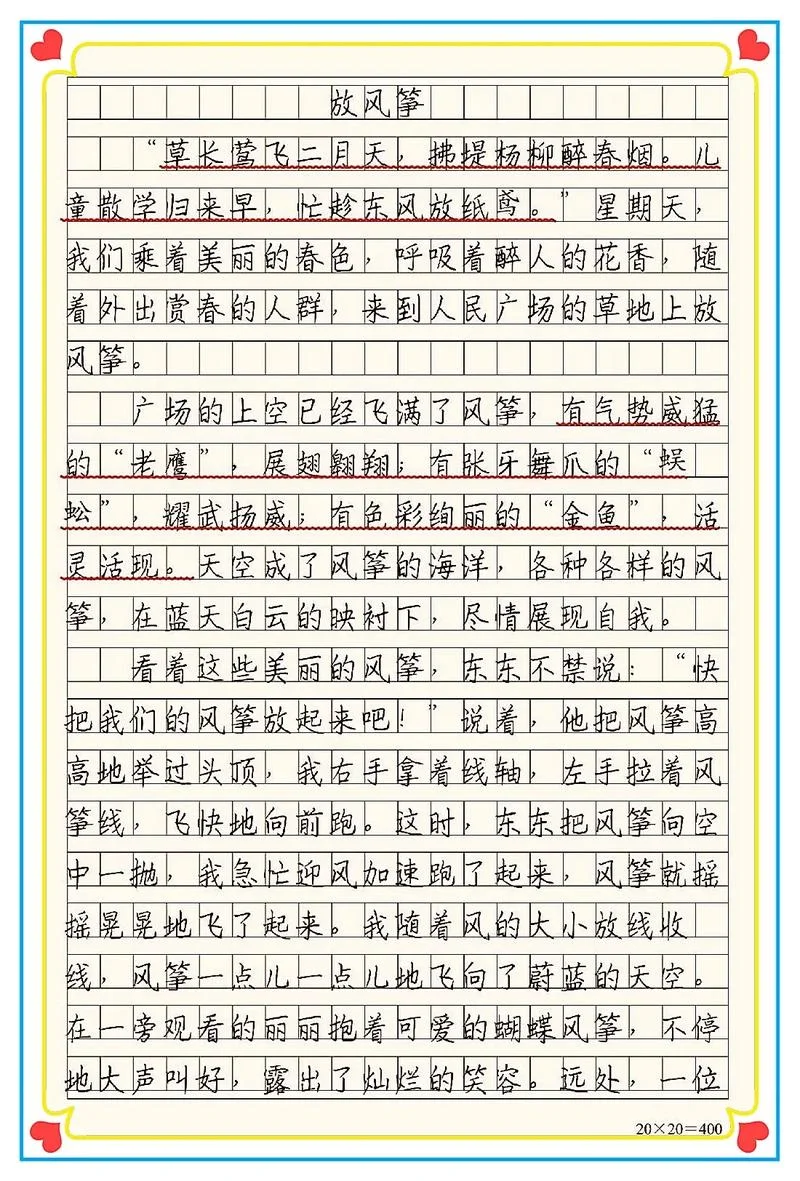 放风筝
“草长莺飞二月天，拂堤杨柳醉春烟。儿
童散学归来早，忙趁东风放纸鸢。”星期天，
我们乘着美丽的春色，呼吸着醉人的花香，随
着外出赏春的人群，来到人民广场的草地上放
风筝。
广场的上空已经飞满了风筝，有气势威猛
的“老鹰”，展翅翱翔；有张牙舞爪的“蜈
蚣”，耀武扬威；有色彩绚丽的“金鱼”，活
灵活现。天空成了风筝的海洋，各种各样的风
筝，在蓝天白云的映衬下，尽情展现自我。
看着这些美丽的风筝，东东不禁说：“快
把我们的风筝放起来吧！”说着，他把风筝高
高地举过头顶，我右手拿着线轴，左手拉着风
筝线，飞快地向前跑。这时，东东把风筝向空
中一抛，我急忙迎风加速跑了起来，风筝就摇
摇晃晃地飞了起来。我随着风的大小放线收
线，风筝一点儿一点儿地飞向了蔚蓝的天空。
在一旁观看的丽丽抱着可爱的蝴蝶风筝，不停
地大声叫好，露出了灿烂的笑容。远处，一位
20×20=400